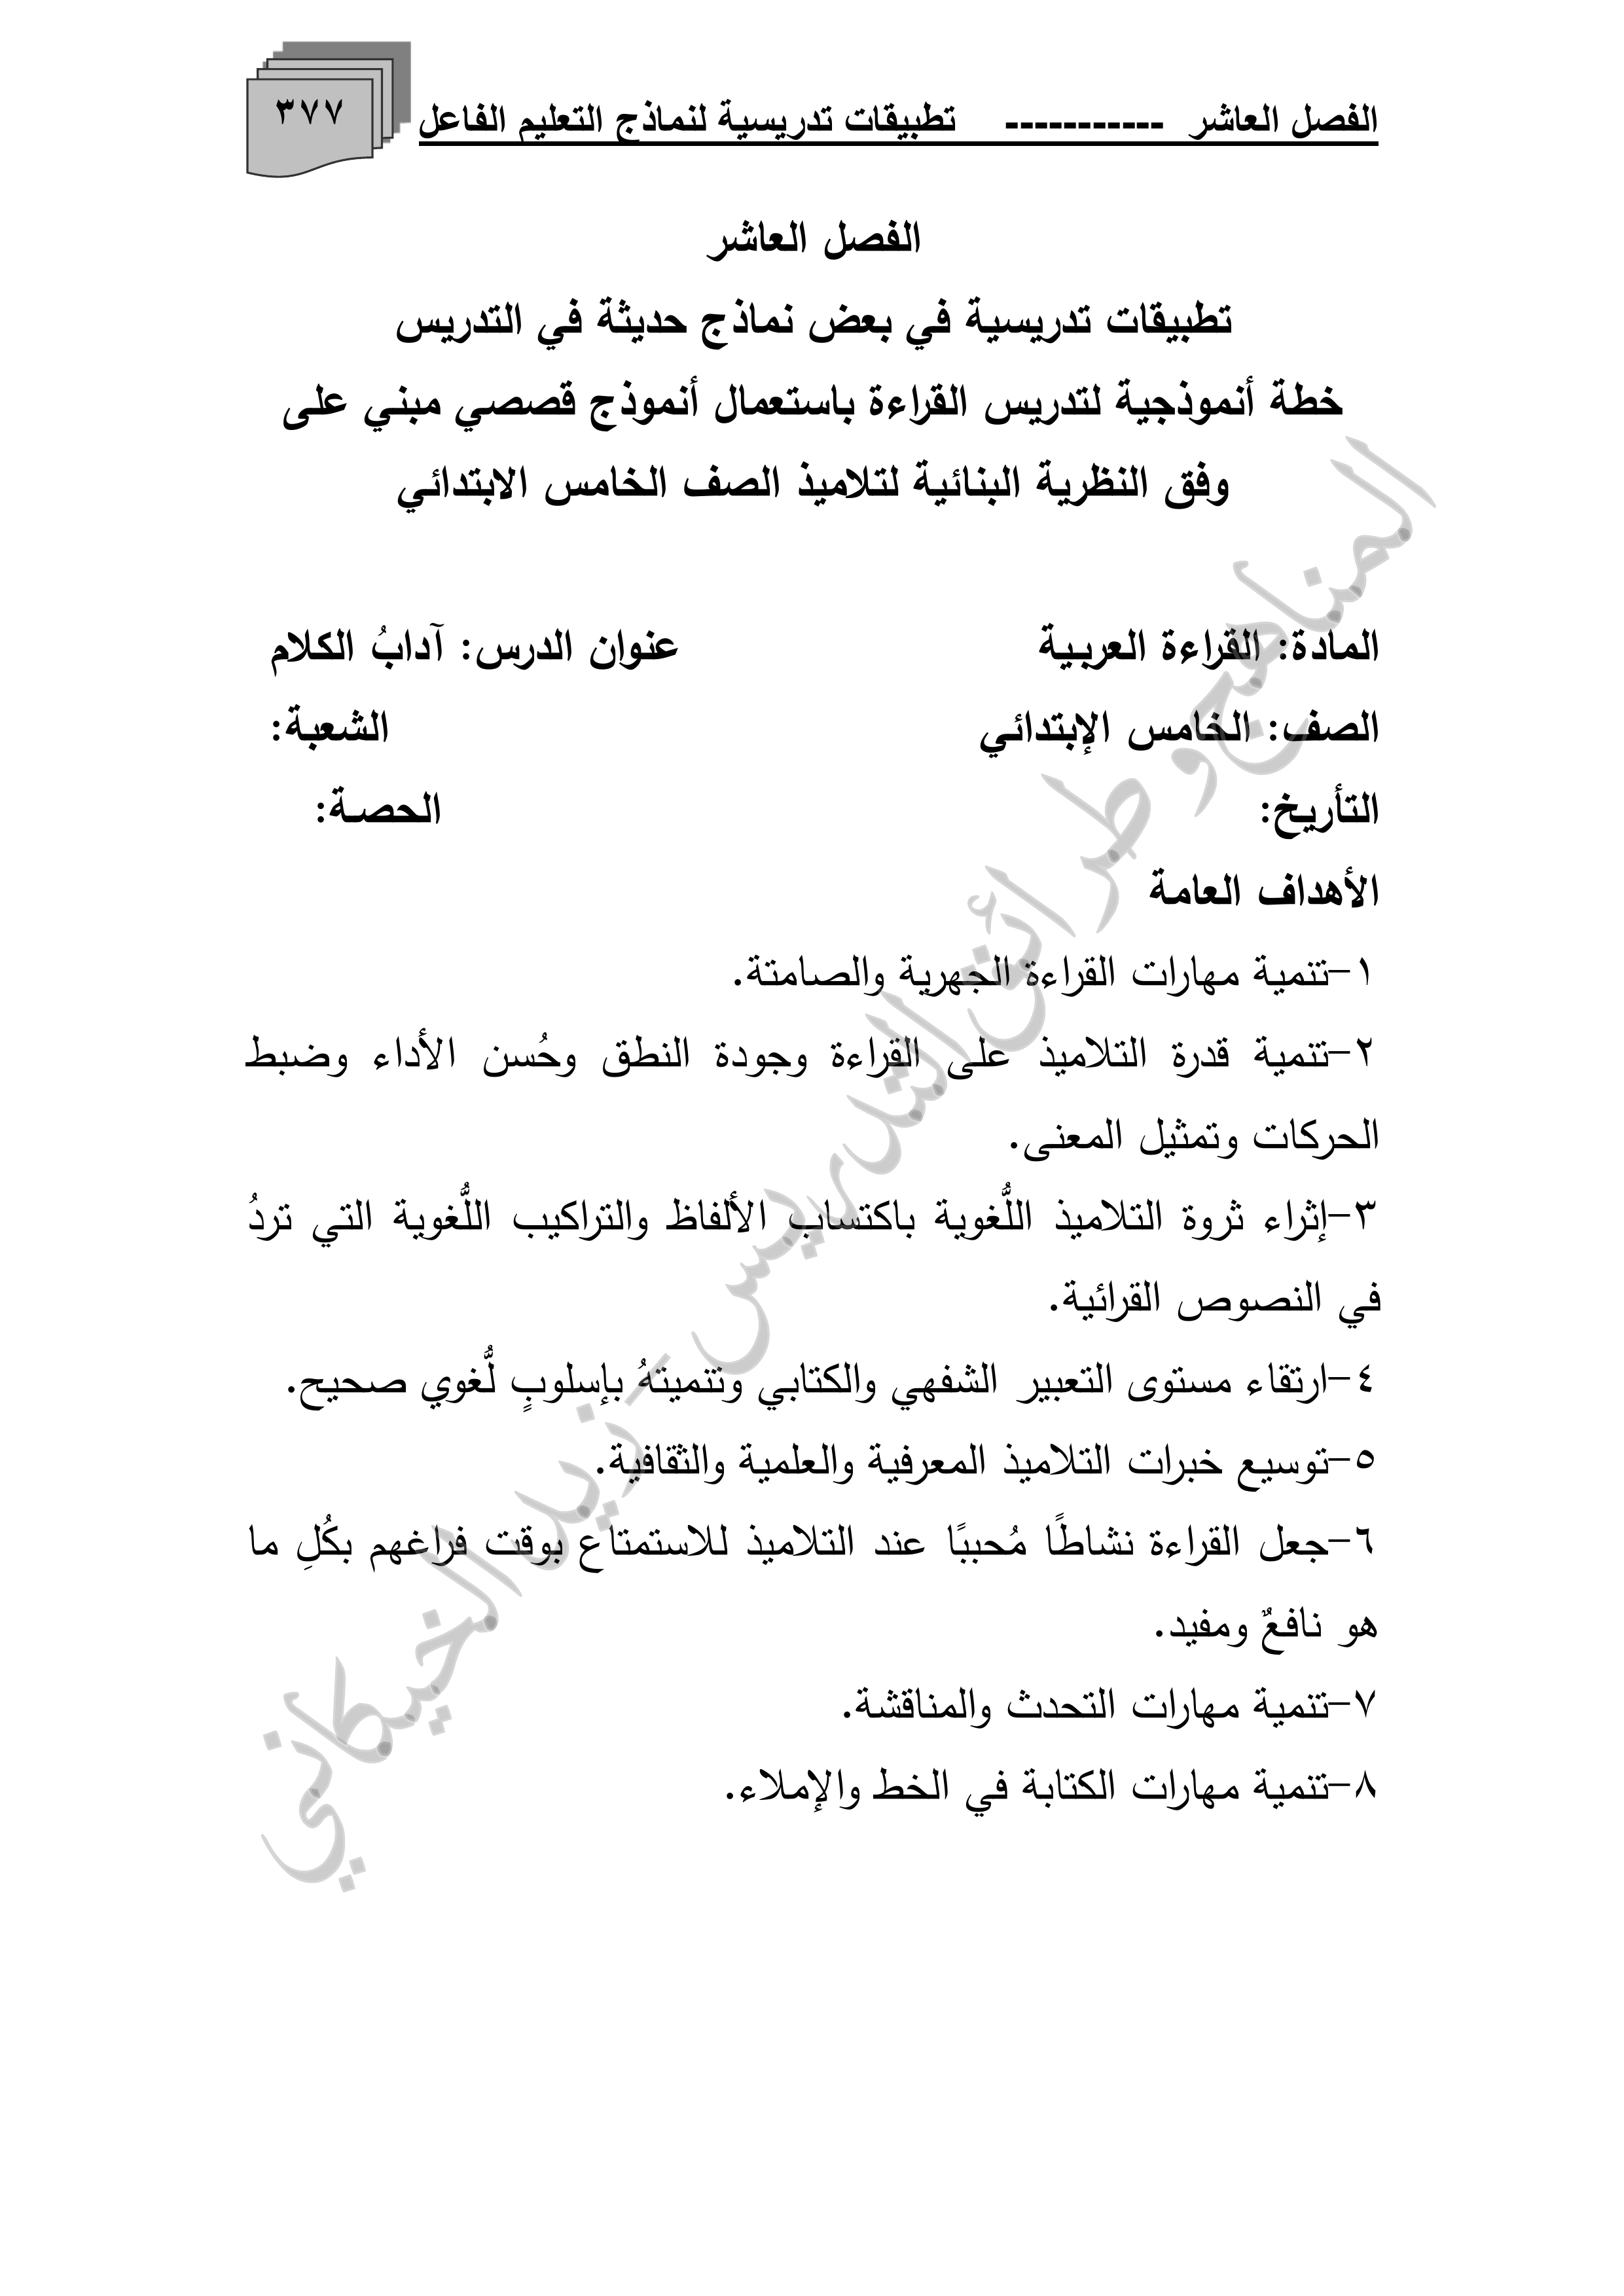 الفصل العاشر ----------- تطبيقات تدريسية لنماذج التعليم الفاعل
٣٧٧
الفصل العاشر
تطبيقات تدريسية في بعض نماذج حديثة في التدريس
خطة أنموذجية لتدريس القراءة باستعمال أنموذج قصصي مبني على
وفق النظرية البنائية لتلاميذ الصف الخامس الابتدائي
المادة: القراءة العربية عنوان الدرس: آدابُ الكلام
الصف: الخامس الإبتدائي الشعبة:
التأريخ: الحصة:
الأهداف العامة
١-تنمية مهارات القراءة الجهرية والصامتة.
٢-تنمية قدرة التلاميذ على القراءة وجودة النطق وحُسن الأداء وضبط
الحركات وتمثيل المعنى.
٣-إثراء ثروة التلاميذ اللُّغوية باكتساب الألفاظ والتراكيب اللُّغوية التي تردُ
في النصوص القرائية.
٤-ارتقاء مستوى التعبير الشفهي والكتابي وتنميتهُ بإسلوبٍ لُّغوي صحيح.
٥-توسيع خبرات التلاميذ المعرفية والعلمية والثقافية.
٦-جعل القراءة نشاطًا مُحببًا عند التلاميذ للاستمتاع بوقت فراغهم بكُلِ ما
هو نافعٌ ومفيد.
٧-تنمية مهارات التحدث والمناقشة.
٨-تنمية مهارات الكتابة في الخط والإملاء.
المناهج و طرائق التدريس - زيد الخيكاني